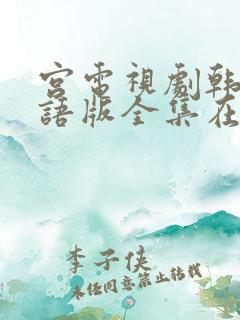 宮電視劇韩
語版全集在
李子侠
未经同意禁止转载